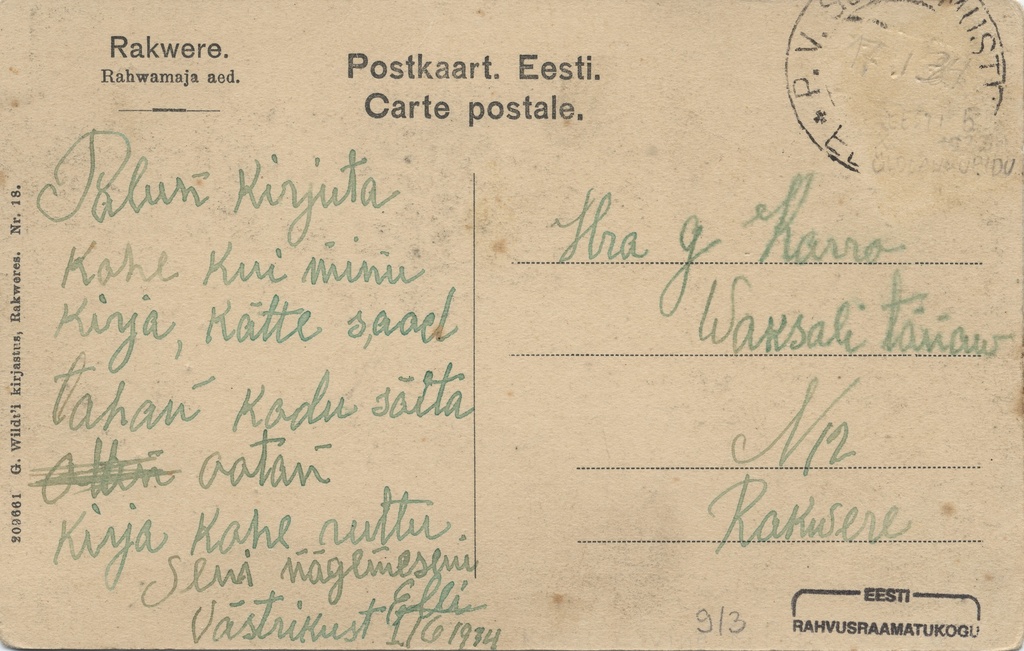 Rakwere.
Rahwamaja aed.
Postkaart. Eesti.
Carte postale.
209661 G. Wildt'i kirjastus, Rakweres. Nr. 18.
Palun Kirjuta
Kohe Kui minu
Kirja, Kätte saad
tahan Kodu sõita
ootan
Kirja Kohe ruttu
Seni nägemeseni
Elli
Västrikust 1/6 1934
Hra G Karro
Waksali tänaw
N12
Rakwere
* P. V.
9/3
EESTI
RAHVUSRAAMATUKOGU